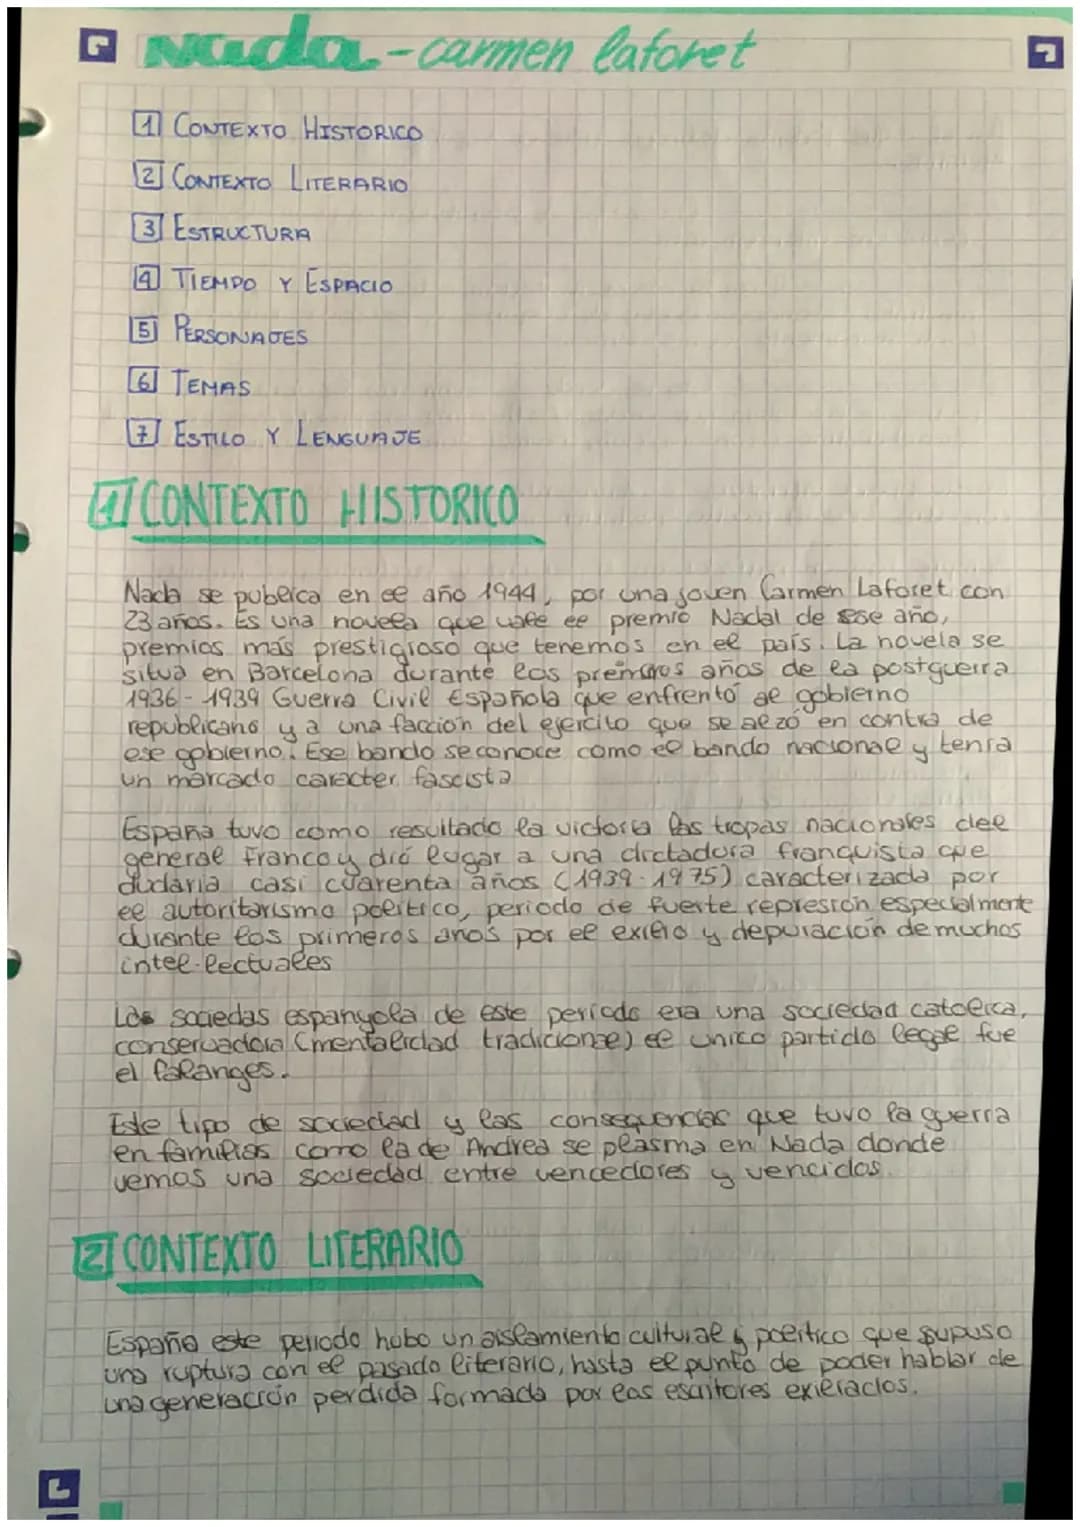 Nada - carmen laforet
1 CONTEXTO HISTORICO
2 CONTEXTO LITERARIO
3 ESTRUCTURA
4 TIEMPO Y ESPACIO
5 PERSONAJES
6 TEMAS
7 ESTILO Y LENGUAJE
1 CONTEXTO HISTORICO
Nada se publica en el año 1944, por una joven Carmen Laforet con
23 años. Es una novela que vale el premio Nadal de ese año,
premios más prestigioso que tenemos en el país. La novela se
situa en Barcelona durante los primeros años de la postguerra
1936 - 1939 Guerra Civil Española que enfrentó al gobierno
republicano y a una facción del ejercito que se alzó en contra de
ese gobierno. Ese bando se conoce como el bando nacional y tenia
un marcado caracter fascista
España tuvo como resultado la victoria las tropas nacionales del
general Franco y dió lugar a una dictadura franquista que
dudaria casi cuarenta años (1939-1975) caracterizada por
el autoritarismo politico, periodo de fuerte represión especialmente
durante los primeros anos por el exilio y depuración de muchos
intel·lectuales
Las sociedas espanyola de este periodo era una sociedad catolica,
conservadora (mentalidad tradicional) el unico partido legal fue
el falanges.
Este tipo de sociedad y las consequencias que tuvo la guerra
en familias como la de Andrea se plasma en Nada donde
vemos una sociedad entre vencedores y vencidos.
2 CONTEXTO LITERARIO
España este periodo hubo un aislamiento cultural y politico que supuso
una ruptura con el pasado literario, hasta el punto de poder hablar de
una generación perdida formada por los escritores exiliados.